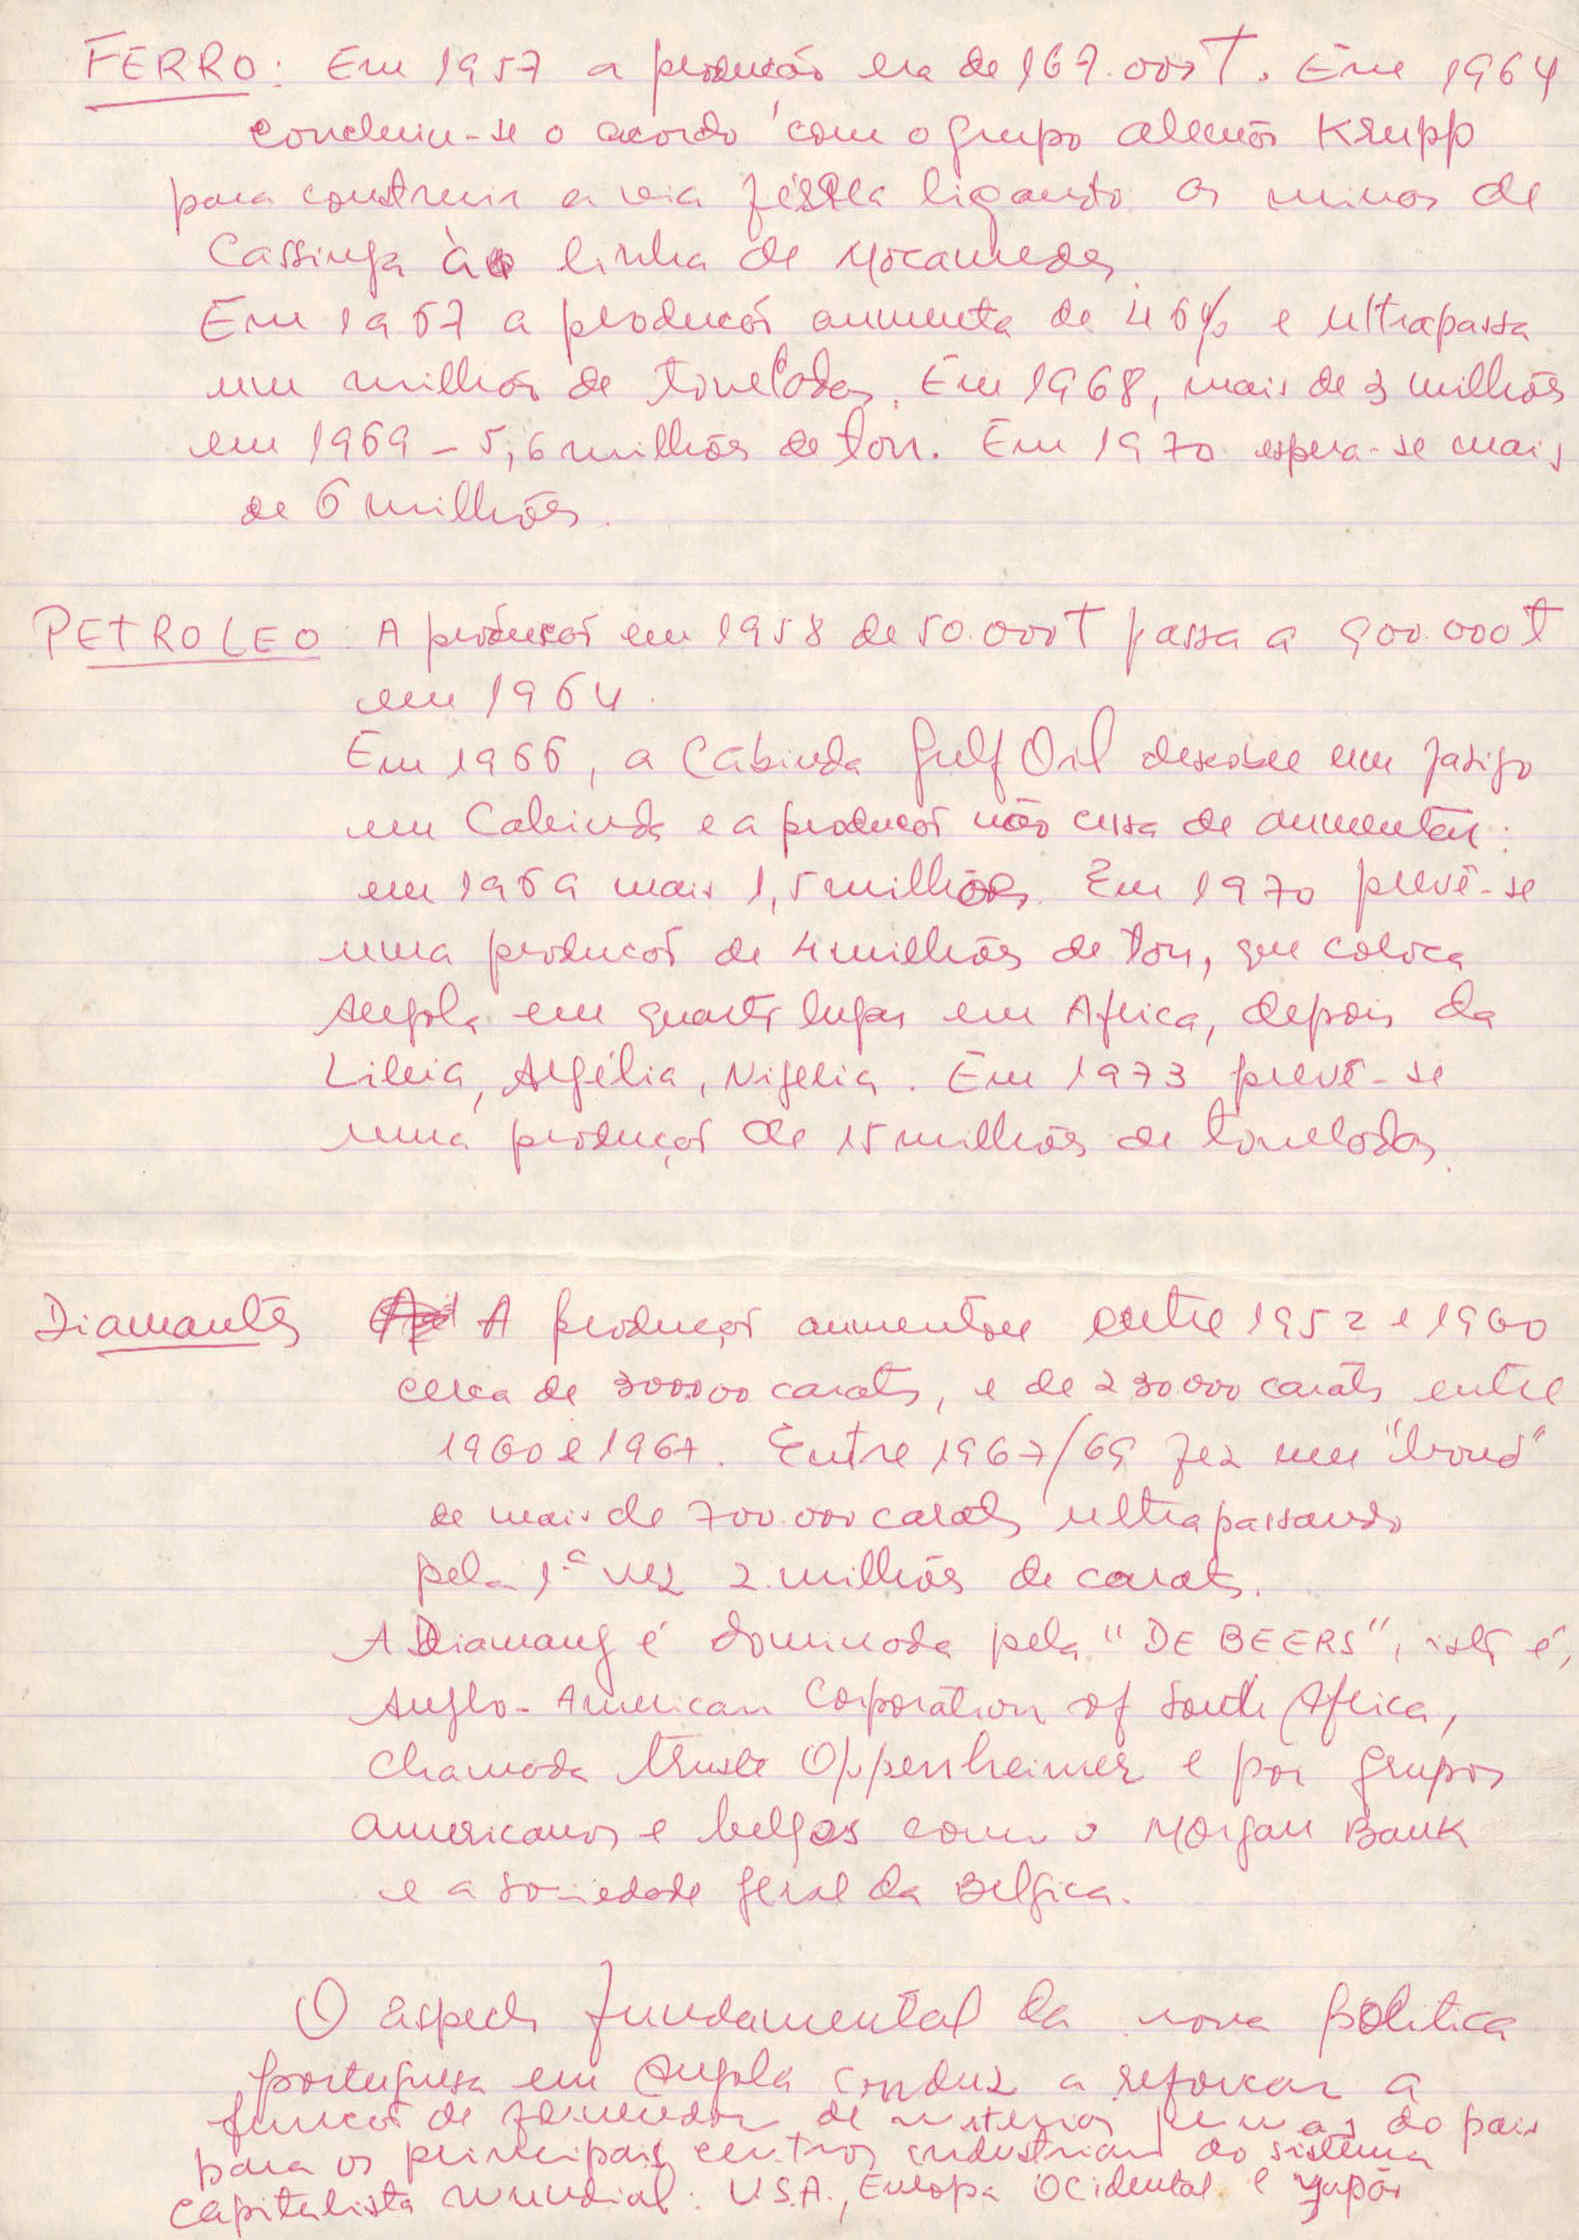 FERRO: Em 1957 a produção era de 167.000T. Em 1964
concluiu-se o acordo com o grupo alemão Krupp
para construir a via férrea ligando as minas de
Cassinga à linha de Moçamedes
Em 1967 a produção aumenta de 46% e ultrapassa
um milhão de toneladas. Em 1968, mais de 3 milhões
em 1969 - 5,6 milhões de ton. Em 1970 espera-se mais
de 6 milhões.
PETROLEO A produção em 1958 de 50.000T passa a 900.000T
em 1964.
Em 1966, a Cabinda Gulf Oil descobre um jasigo
em Cabinda e a produção não cessa de aumentar:
em 1969 mais 1,5 milhões. Em 1970 prevê-se
uma produção de 4 milhões de ton, que coloca
Angola em quarto lugar em Africa, depois da
Libia, Algélia, Nigeria. Em 1973 prevê-se
uma produção de 15 milhões de toneladas.
Diamantes A produção aumentou entre 1952 e 1960
cerca de 300000 carats, e de 230.000 carats entre
1960 e 1967. Entre 1967/69 fez um "bond"
de mais de 700.000 carats ultrapassando
pela 1ª vez 2 milhões de carats.
A Diamang é dominada pela "DE BEERS", isto é,
Anglo-American Corporation of South Africa,
chamada truste Oppenheimer e por grupos
americanos e belgas como o Morgan Bank
e a Sociedade Geral da Belgica.
O aspecto fundamental da nova politica
portuguesa em Angola conduz a reforçar a
função de fornecedor de materias primas do pais
para os principais centros industriais do sistema
capitalista mundial: U.S.A., Europa Ocidental e Japão